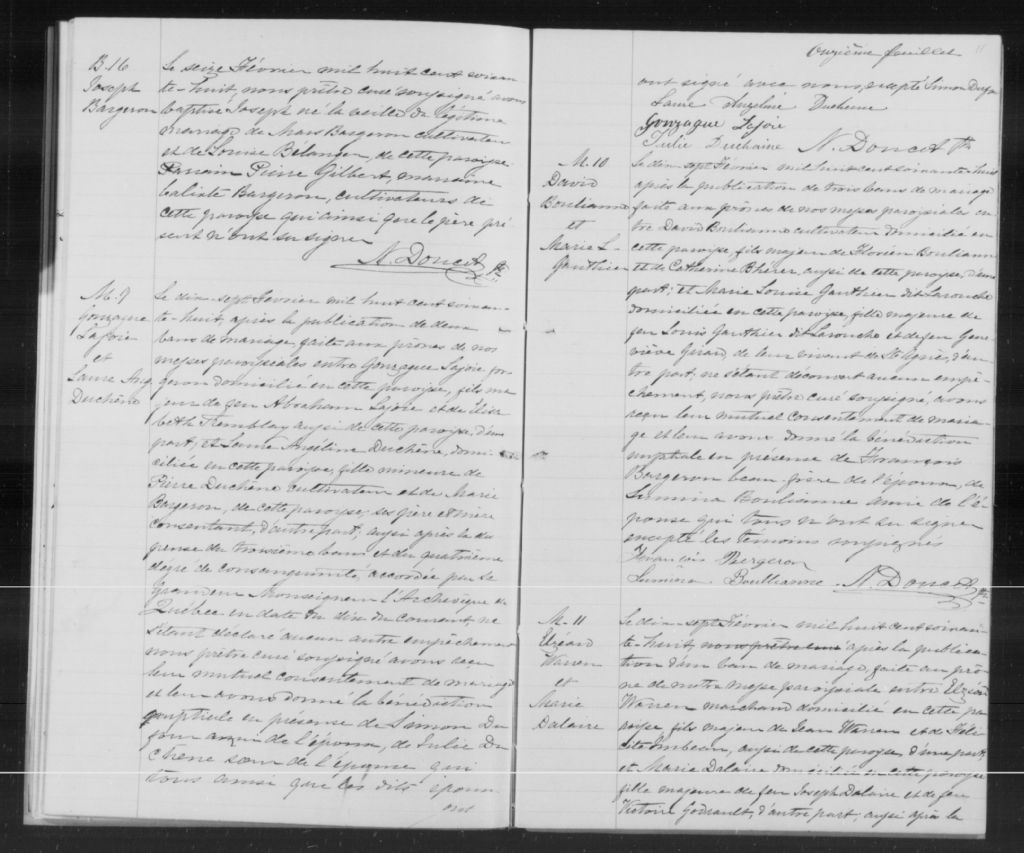 B. 16
Joseph
Bargeron
Le seize Février mil huit cent soixan
te-huit, nous prêtre curé soussigné avons
baptisé Joseph né la veille du légitime
mariage de Mars Bargeron cultivateur
et de Louise Bélanger, de cette paroisse.
Parrain Pierre Gilbert, marraine
Calixte Bargeron, cultivateurs de
cette paroisse qui ainsi que le père pré
sent n'ont su signer
N. Doucet Ptr
M. 9
Gonzague
Lajoie
et
Laure Ang.
Duchêne
Le dix-sept Février mil huit cent soixan-
te-huit, après la publication de deux
bans de mariage, faite aux prônes de nos
messes paroissiales entre Gonzague Lajoie for
geron domicilié en cette paroisse, fils ma
jeur de feu Abraham Lajoie et de Elisa
beth Tremblay aussi de cette paroisse, d'une
part; et Laure Angéline Duchêne, domi
ciliée en cette paroisse, fille mineure de
Pierre Duchêne cultivateur et de Marie
Bargeron, de cette paroisse; ses père et mère
consentant, d'autre part; aussi après la dis
pense du troisième bans et du quatrième
degré de consanguinité, accordée par Sa
Grandeur Monseigneur l'Archevêque de
Québec en date du dix du courant ne
s'étant déclaré aucun autre empêchement
nous prêtre curé soussigné avons reçu
leur mutuel consentement de mariage
et leur avons donné la bénédiction
nuptiale en présence de Simon Du
four de l'époux, de Julie Du
chêne sœur de l'épouse qui
tous ainsi que les dits époux
ont
Onzième feuillet
11
ont signé avec nous, excepté Simon
Laure Angeline Duchenne
Gonzague Lajoie
Julie Duchaine N. Doucet Ptr
M. 10
David
Boulianne
et
Marie L.
Gauthier
Le dix-sept Février mil huit cent soixante huit
après la publication de trois bans de mariage
faite aux prônes de nos messes paroissiales en
tre David Boulianne cultivateur domicilié en
cette paroisse, fils majeur de Florien Boulianne
et de Catherine Bhérer, aussi de cette paroisse, d'une
part; et Marie Louise Gauthier dit Larouche
domiciliée en cette paroisse, fille majeure de
feu Louis Gauthier dit Larouche et de feu Gene
viève Girard, de leur vivant de Ste Agnès, d'au
tre part, ne s'étant découvert aucun empê-
chement, nous prêtre curé soussigné, avons
reçu leur mutuel consentement de maria-
ge et leur avons donné la bénédiction
nuptiale en présence de François
Bargeron beau-frère de l'époux, de
Lumina Boulianne amie de l'é-
pouse qui tous n'ont su signer
excepté les témoins soussignés
François Bergeron
Lumina Boullianne N. Doucet Ptr
M. 11
Elzéard
Warren
et
Marie
Dalaire
Le dix-sept Février mil huit cent soixan-
te-huit, nous prêtre curé après la publica-
tion d'un ban de mariage, faite au prô
ne de notre messe paroissiale entre Elzéard
Warren marchand domicilié en cette pa
roisse fils majeur de Jean Warren et de Féli
cité Imbeau, aussi de cette paroisse d'une part,
et Marie Dalaire domiciliée en cette paroisse
fille majeure de feu Joseph Dalaire et de feu
Victoire Godreault, d'autre part; aussi après la